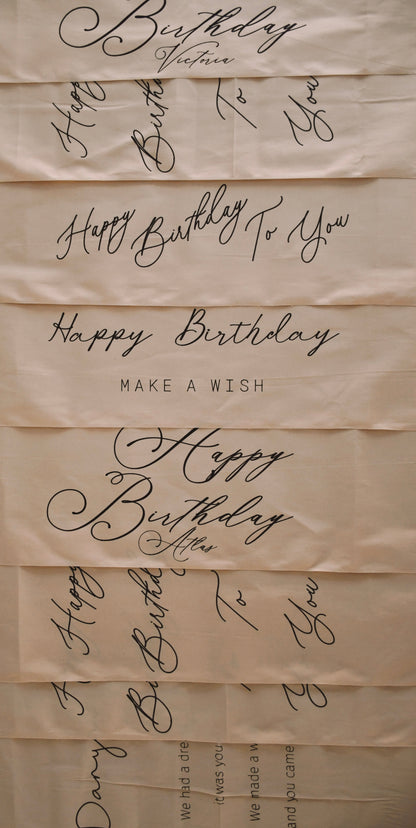 Birthday
Victoria
Happy
Birthday
To
You
Happy Birthday To You
Happy Birthday
MAKE A WISH
Happy
Birthday
Atlas
Happy
Birthday
To
You
Dany
We had a dre
it was you
We made a w
and you came